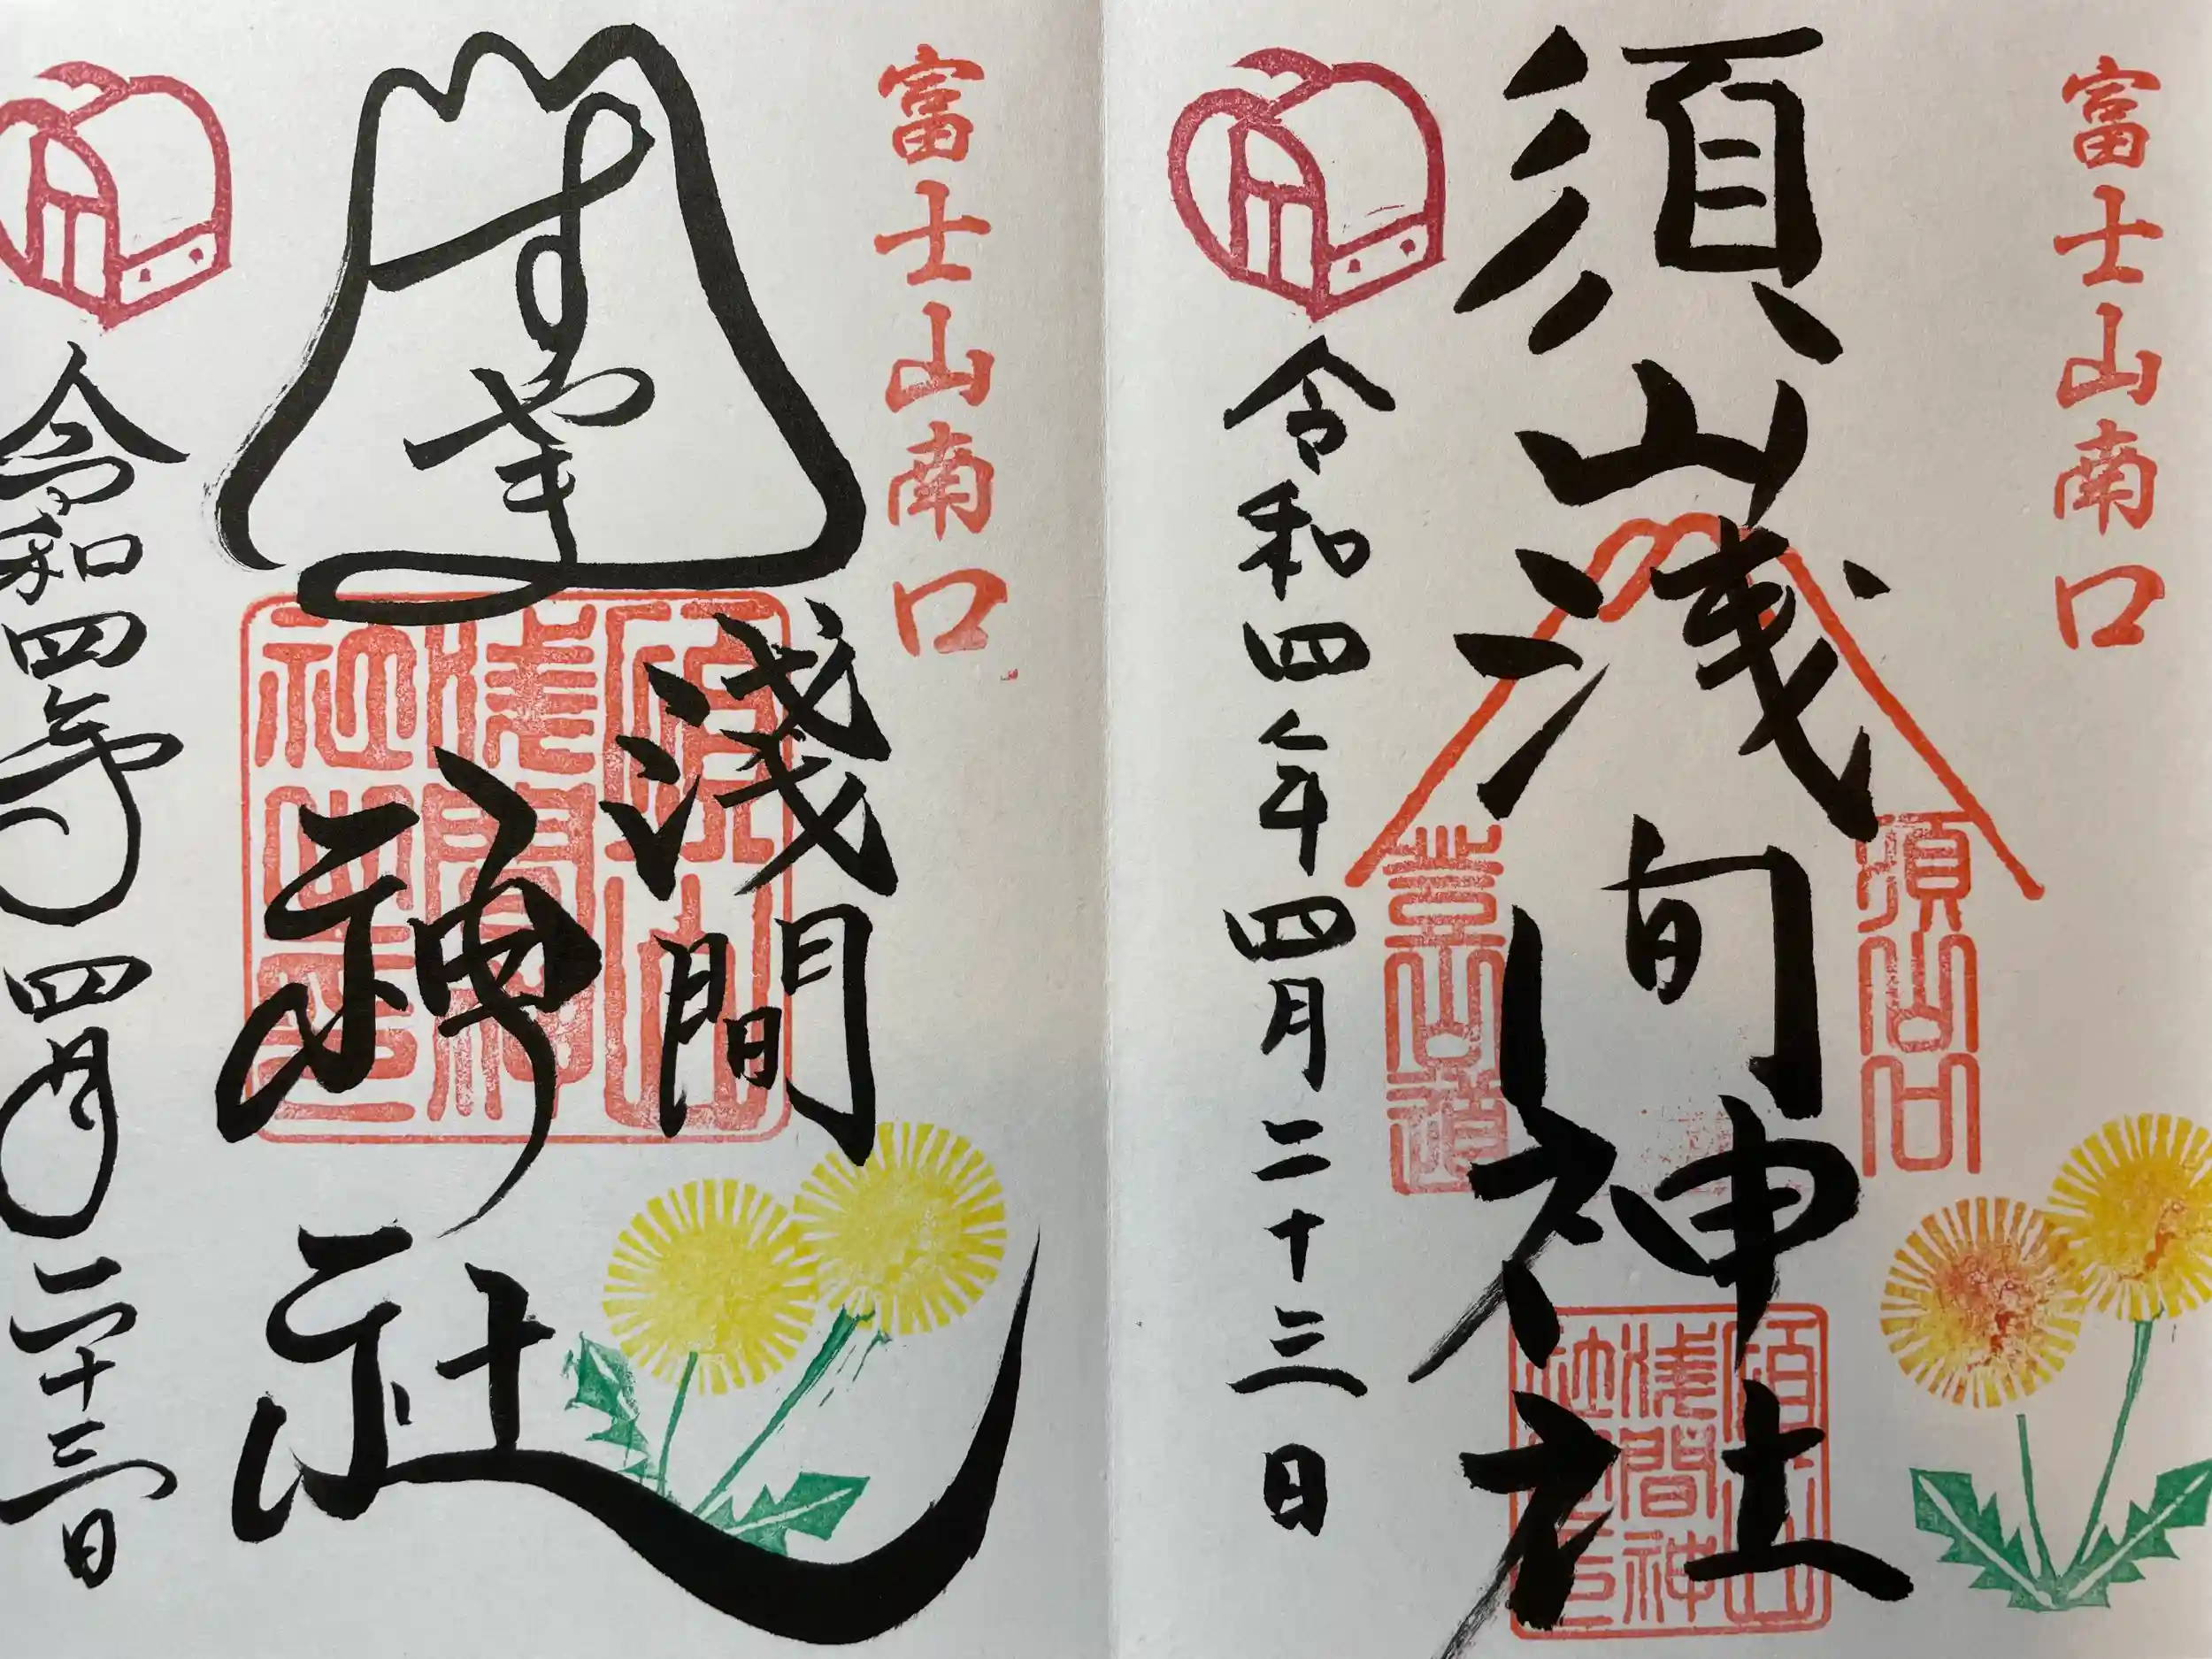 富士山南口
須山浅間神社
須山口
登山道
須山浅間神社之印
令和四年四月二十三日
富士山南口
すやま
淺間
神社
須山浅間神社之印
令和四年四月二十三日